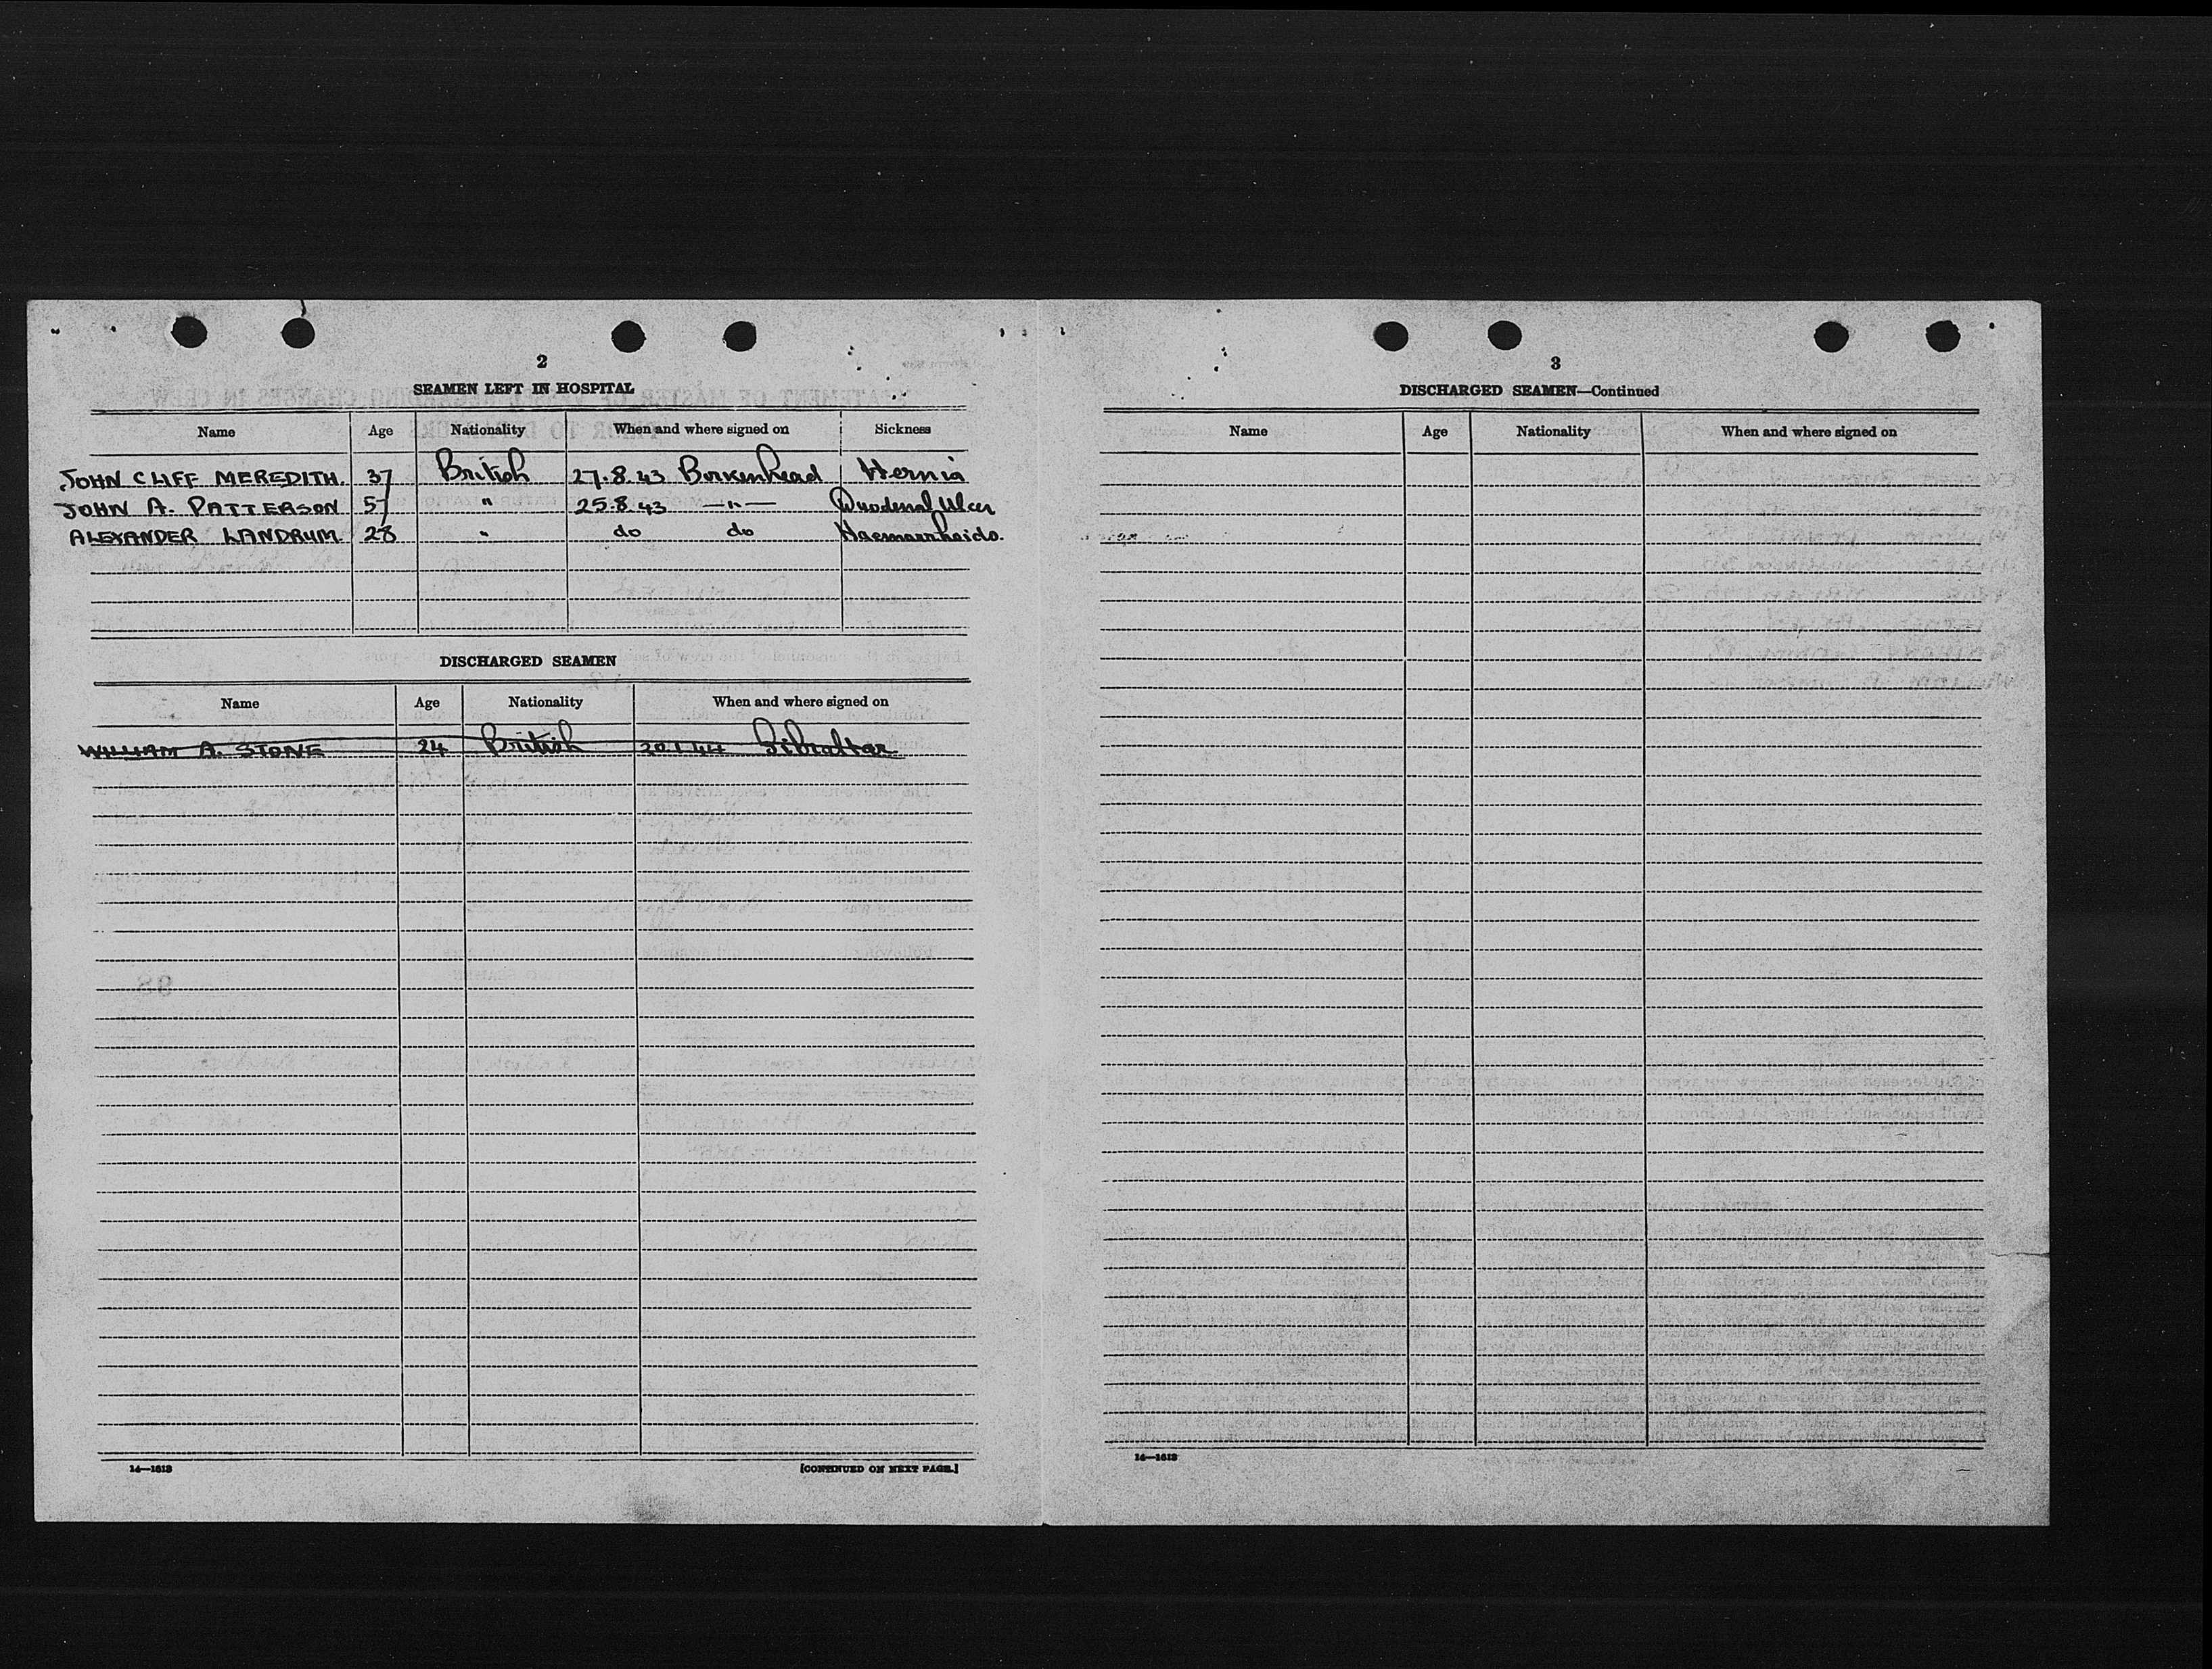 2
SEAMEN LEFT IN HOSPITAL
Name Age Nationality When and where signed on Sickness
JOHN CLIFF MEREDITH. 37 British 27.8.43 Birkenhead Hernia
JOHN A. PATTERSON 57 " 25.8.43 —"— Duodenal Ulcer
ALEXANDER LANDRUM. 28 " do do Haemorrhoids.
DISCHARGED SEAMEN
Name Age Nationality When and where signed on
WILLIAM A. STONE 24 British 20.1.44 Gibraltar
14—1613
[CONTINUED ON NEXT PAGE.]
3
DISCHARGED SEAMEN—Continued
Name Age Nationality When and where signed on
14—1613